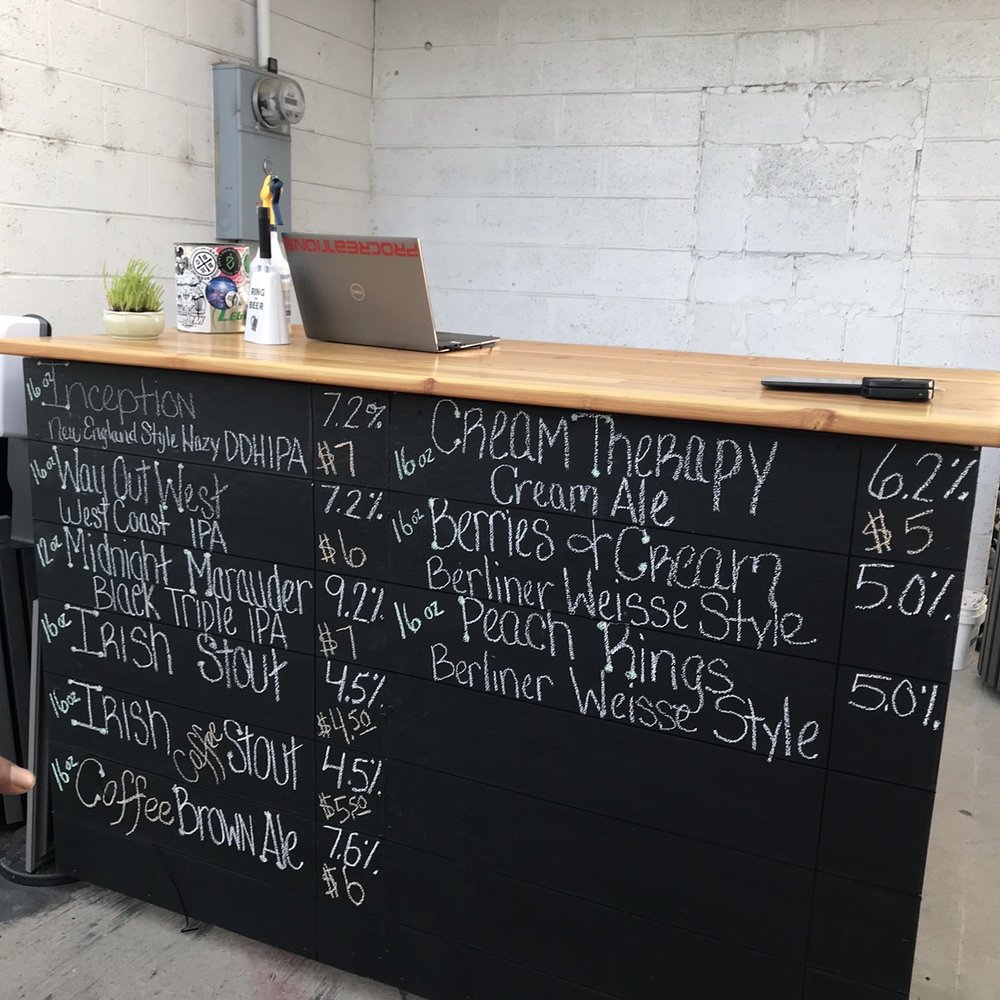 PROCREATIONS
DELL
RING
for
BEER
16 oz Inception 7.2%
New England Style Hazy DDHIPA $7
16 oz Way Out West 7.2%
West Coast IPA $6
12 oz Midnight Marauder 9.2%
Black Triple IPA $7
16 oz Irish Stout 4.5%
$4.50
16 oz Irish Coffee Stout 4.5%
$5.50
16 oz Coffee Brown Ale 7.6%
$6
16 oz Cream Therapy 6.2%
Cream Ale $5
16 oz Berries & Cream 5.0%
Berliner Weisse Style
16 oz Peach Rings 5.0%
Berliner Weisse Style